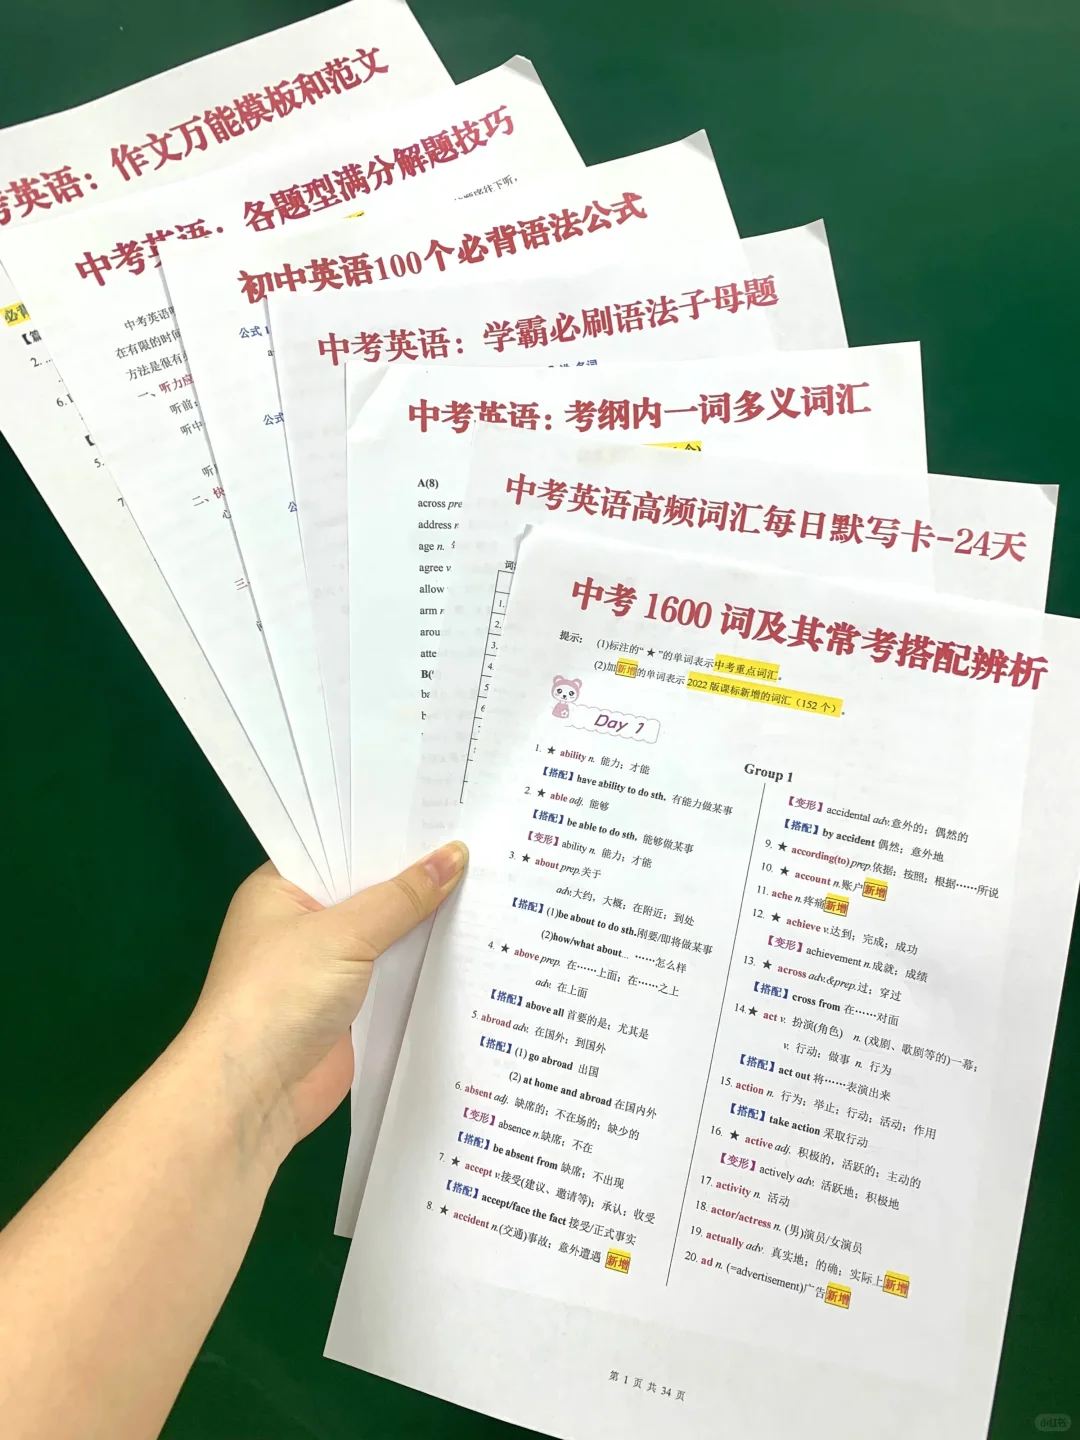 考英语：作文万能模板和范文
中考英语：各题型满分解题技巧
初中英语100个必背语法公式
中考英语：学霸必刷语法子母题
中考英语：考纲内一词多义词汇
中考英语高频词汇每日默写卡-24天
必背
2.
6.
5.
中考英语
在有限的时间
方法是很有
一、听力应
听前：
听中
听
二、快
三
公式 1
公式
公
A(8)
across pre
address n
age n.
agree v
allow
arm
arou
atte
B(
词
1.
2.
3.
4.
5
6
中考 1600 词及其常考搭配辨析
提示： (1)标注的“★”的单词表示中考重点词汇。
(2)加新增的单词表示 2022 版课标新增的词汇（152 个）。
Day 1
Group 1
1. ★ ability n. 能力；才能
【搭配】have ability to do sth. 有能力做某事
2. ★ able adj. 能够
【搭配】be able to do sth. 能够做某事
【变形】ability n. 能力；才能
3. ★ about prep.关于
adv.大约，大概；在附近；到处
【搭配】(1)be about to do sth.刚要/即将做某事
(2)how/what about... ……怎么样
4. ★ above prep. 在……上面；在……之上
adv. 在上面
【搭配】above all 首要的是；尤其是
5. abroad adv. 在国外；到国外
【搭配】(1) go abroad 出国
(2) at home and abroad 在国内外
6. absent adj. 缺席的；不在场的；缺少的
【变形】absence n.缺席；不在
【搭配】be absent from 缺席；不出现
7. ★ accept v.接受(建议、邀请等)；承认；收受
【搭配】accept/face the fact 接受/正式事实
8. ★ accident n.(交通)事故；意外遭遇 新增
【变形】accidental adv.意外的；偶然的
【搭配】by accident 偶然；意外地
9. ★ according(to) prep.依据；按照；根据……所说
10. ★ account n.账户新增
11. ache n.疼痛新增
12. ★ achieve v.达到；完成；成功
【变形】achievement n.成就；成绩
13. ★ across adv.&prep.过；穿过
【搭配】cross from 在……对面
14.★ act v. 扮演(角色) n. (戏剧、歌剧等的)一幕；
v. 行动；做事 n. 行为
【搭配】act out 将……表演出来
15. action n. 行为；举止；行动；活动；作用
【搭配】take action 采取行动
16. ★ active adj. 积极的，活跃的；主动的
【变形】actively adv. 活跃地；积极地
17. activity n. 活动
18. actor/actress n. (男)演员/女演员
19. actually adv. 真实地；的确；实际上新增
20. ad n. (=advertisement)广告新增
第 1 页 共 34 页